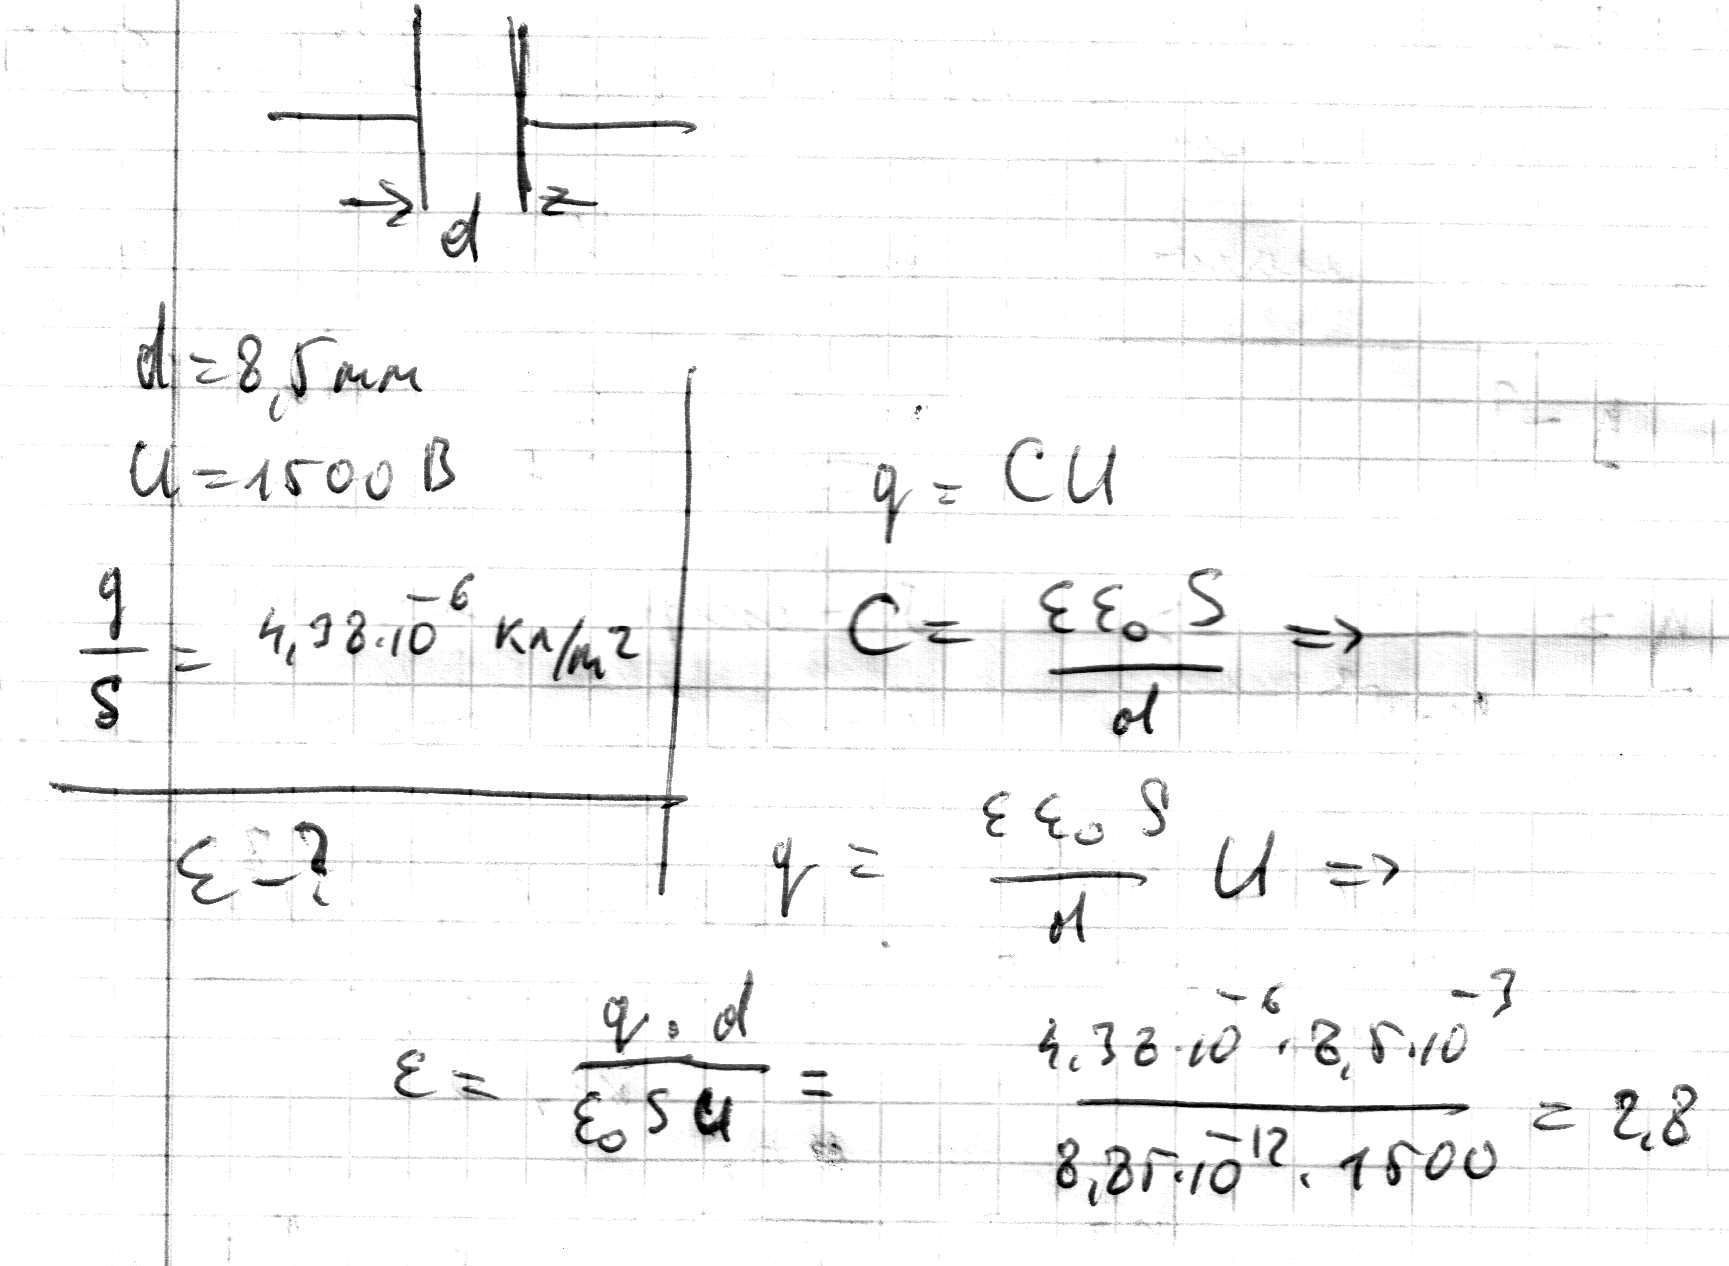 d
d = 8,5 мм
U = 1500 В
q/S = 4,38·10^-6 Кл/м^2
ε - ?
q = CU
C = εε₀S/d =>
q = εε₀S/d U =>
ε = q·d/ε₀SU = 4,38·10^-6·8,5·10^-3/8,85·10^-12·1500 = 2,8